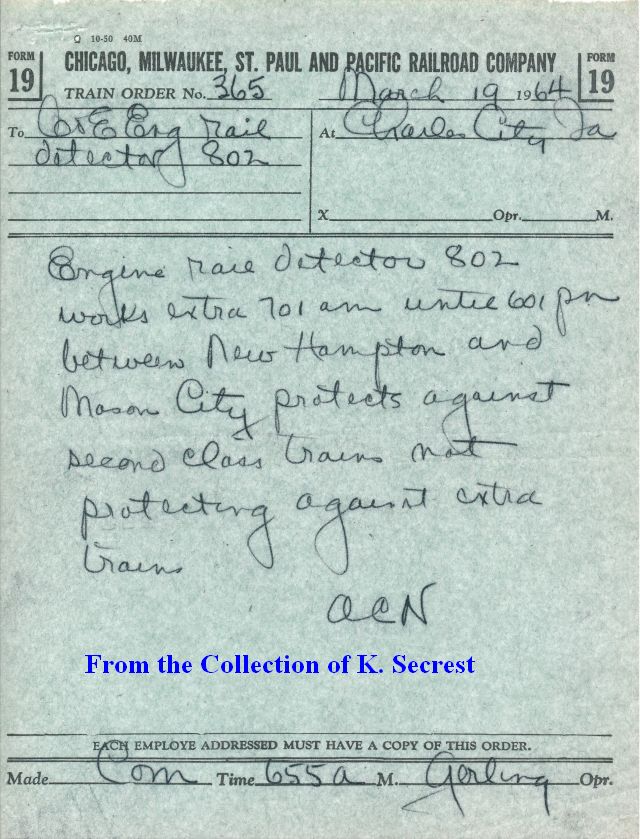 10-50 40M
FORM 19 CHICAGO, MILWAUKEE, ST. PAUL AND PACIFIC RAILROAD COMPANY FORM 19
TRAIN ORDER No. 365 March 19 1964
To C&E Eng rail At Charles City Ia
detector 802
X Opr. M.
Engine rail detector 802
works extra 701 am until 601 pm
between New Hampton and
Mason City protects against
second class trains not
protecting against extra
trains
ACN
From the Collection of K. Secrest
EACH EMPLOYE ADDRESSED MUST HAVE A COPY OF THIS ORDER.
Made Com Time 655a M. Gerling Opr.